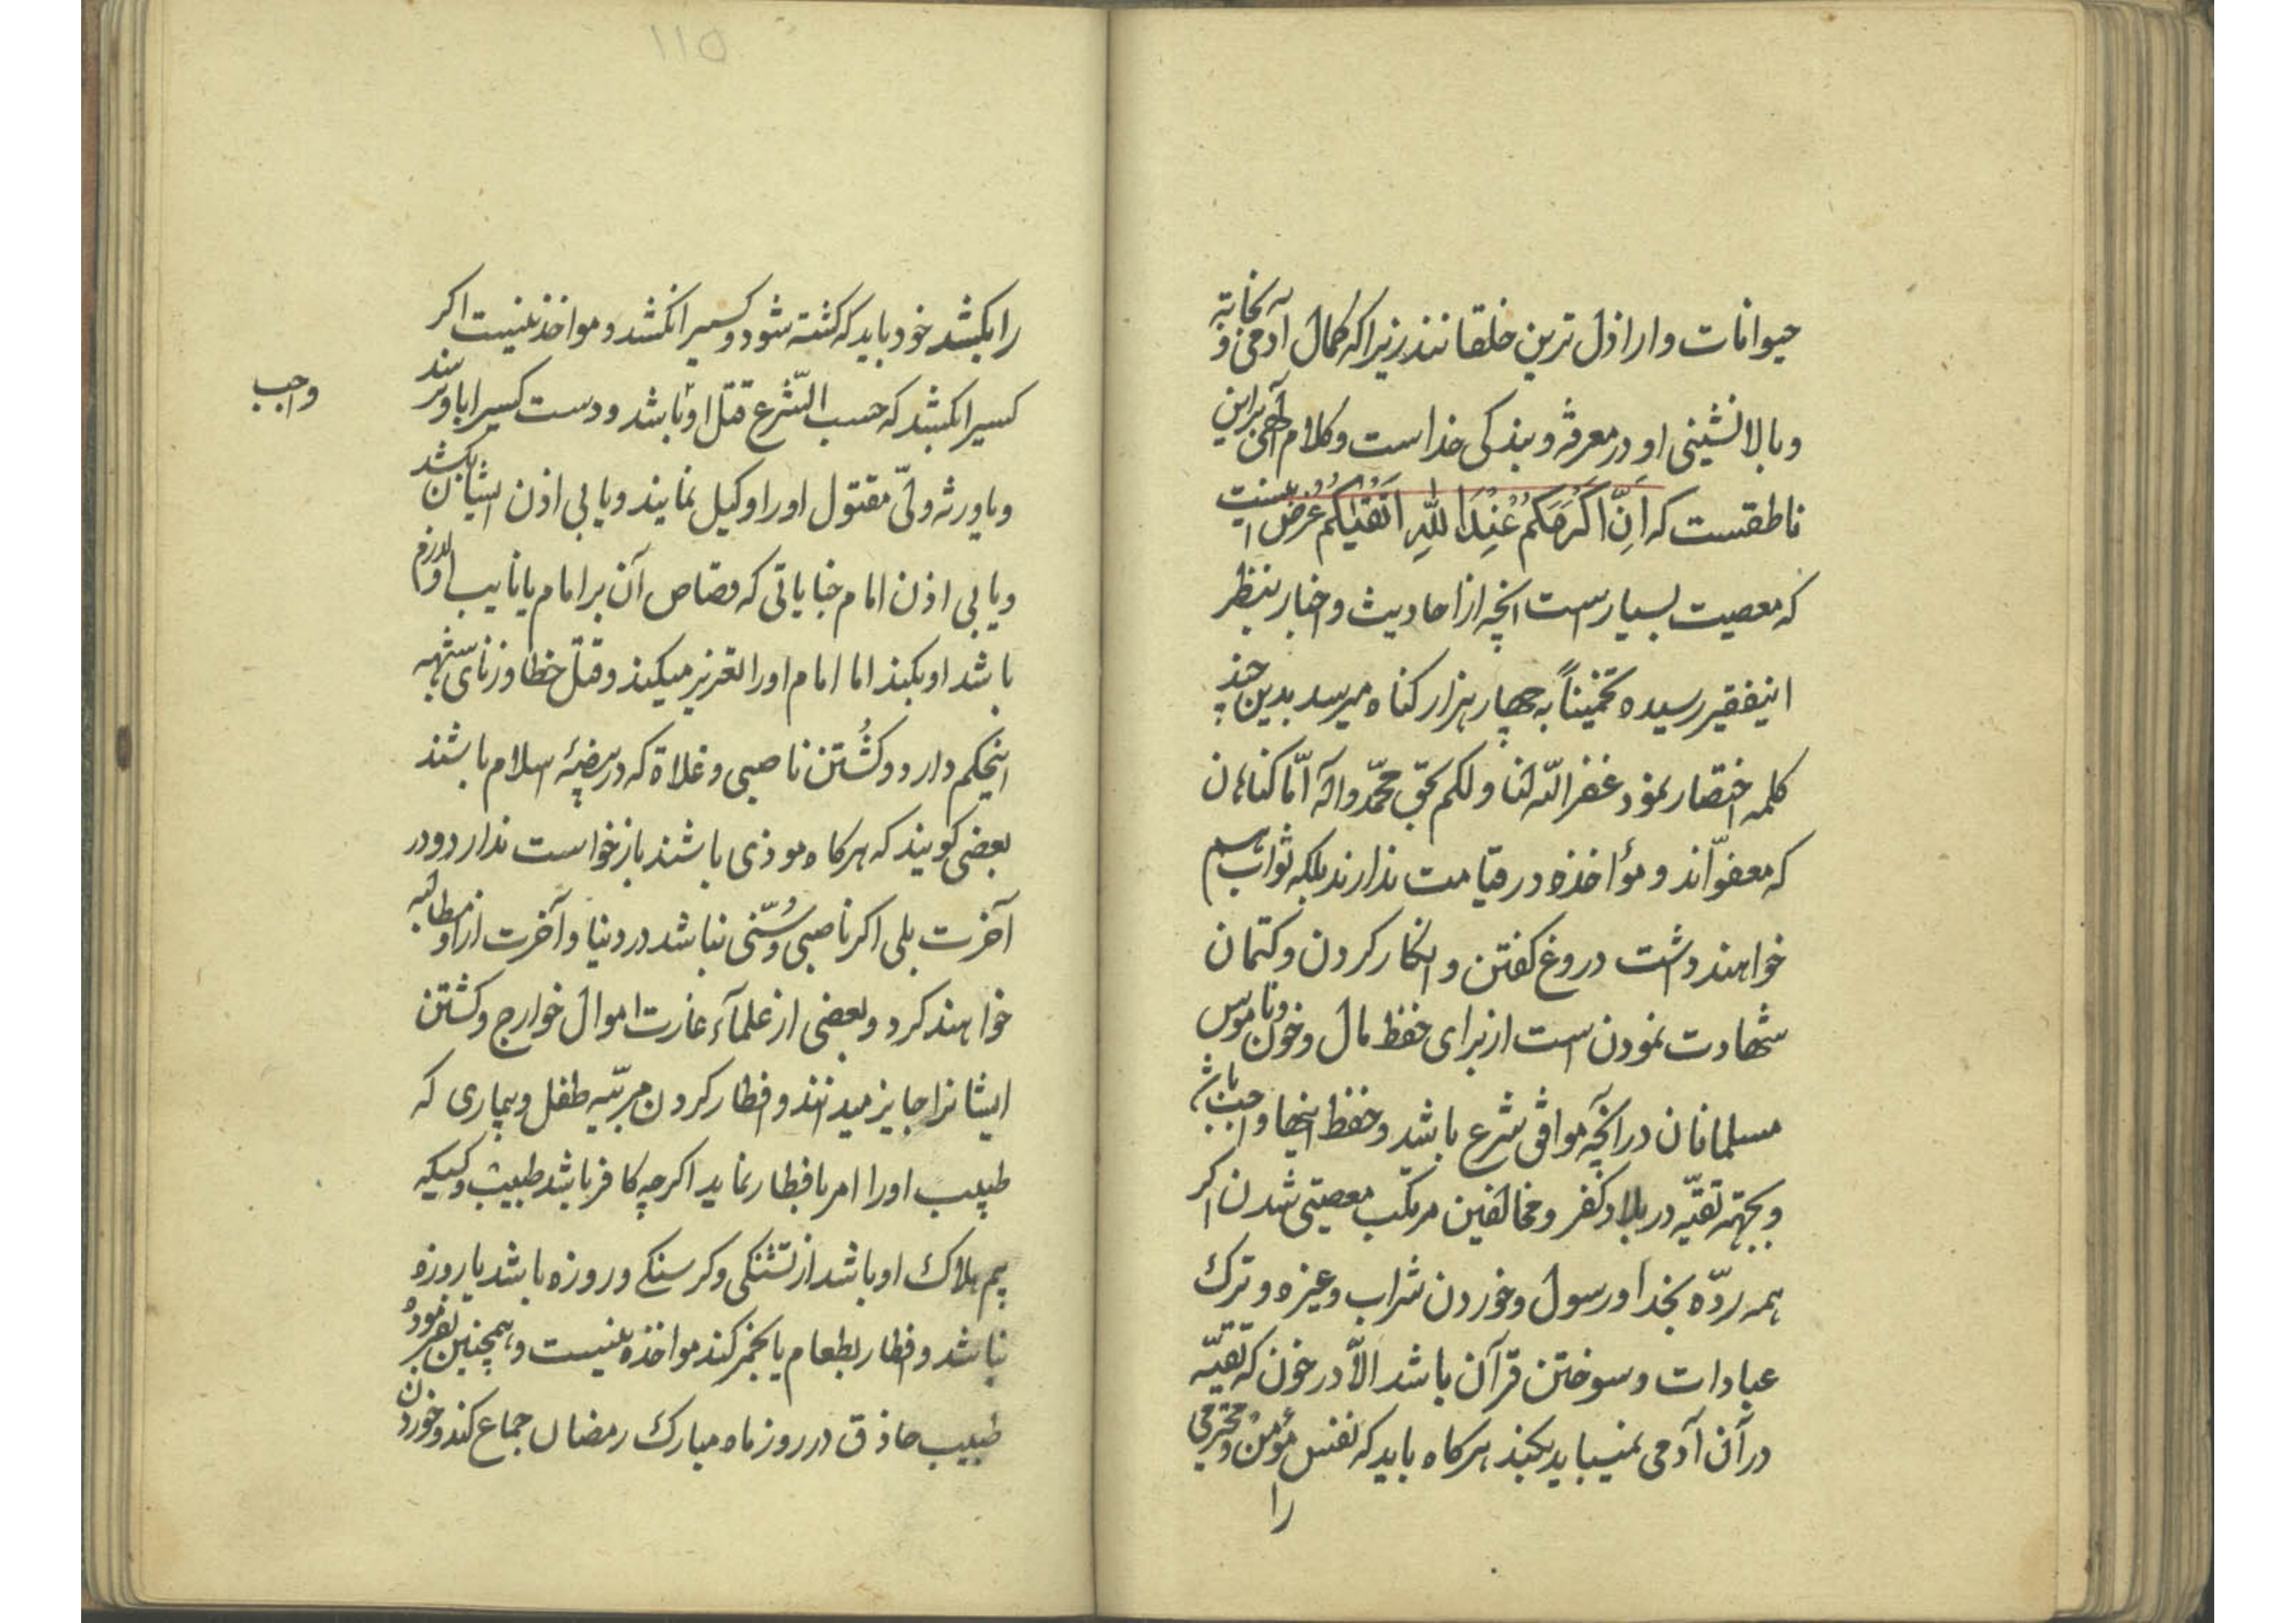 حیوانات و ارازل ترین خلقانند زیرا که کمال آدمی و نجابة
و بالا نشینی او در معرفه و بندکی خداست و کلام آلهی براین
ناطقست که اِنَّ اَکْرَمَکُمْ عِنْدَ اللّٰهِ اَتْقٰیکُمْ غرض اینست
که معصیت بسیارست انچه از احادیث و اخبار بنظر
اینفقیر رسیده تخمیناً به چهار هزار کناه میرسد بدین چند
کلمه اختصار نمود غفر اللّه لنا و لکم بحقّ محمّد و آله امّا کناهان
که معفوّاند و مؤاخذه در قیامت ندارند بلکه ثواب هم
خواهند داشت دروغ کفتن و انکار کردن و کتمان
شهادت نمودن است از برای حفظ مال و خون و ناموس
مسلمانان در آنچه موافق شرع باشد و حفظ اینها واجب باشد
و بجهته تقیّه در بلاد کفر و مخالفین مرتکب معصیتی شدن اکر
همه ردّه بخدا و رسول و خوردن شراب و غیره و ترک
عبادات و سوختن قرآن باشد الّا در خون که تقیّه
در آن آدمی نمیباید بکند هرکاه باید که نفس مؤمن و محترمی
را
۱۱۵
را بکشد خود باید که کشته شود و کسیرا نکشد و مواخذ نیست اکر
کسیرا بکشد که حسب الشّرع قتل او باشد و دست کسیرا باو
واجب
و یا ورثه ولیّ مقتول او را وکیل نمایند و یا بی اذن ایشان بکشد
و یا بی اذن امام جنایاتی که قصاص آن بر امام یا نایب او لازم
باشد او بکند اما امام او را تعزیر میکند و قتل خطا و زنای شبهه
اینحکم دارد و کُشتن ناصبی و غلاة که در بیضهٔ اسلام باشند
بعضی کویند که هرکاه موذی باشند بازخواست ندارد و در
آخرت بلی اکر ناصبی و سُنّی نباشد در دنیا و آخرت از او مطالبه
خواهند کرد و بعضی از علمآء غارت اموال خوارج و کشتن
ایشانرا جایز میدانند و افطار کردن مربّیه طفل و بیماری که
طبیب او را امر بافطار نماید اکرچه کافر باشد طبیب و کسیکه
بیم هلاک او باشد از تشنکی و کرسنکی و روزه باشد یا روزه
نباشد و افطار بطعام یا بخمر کند مواخذه نیست و همچنین بفرمودهٔ
طبیب حاذق در روز ماه مبارک رمضان جماع کند و خوردن